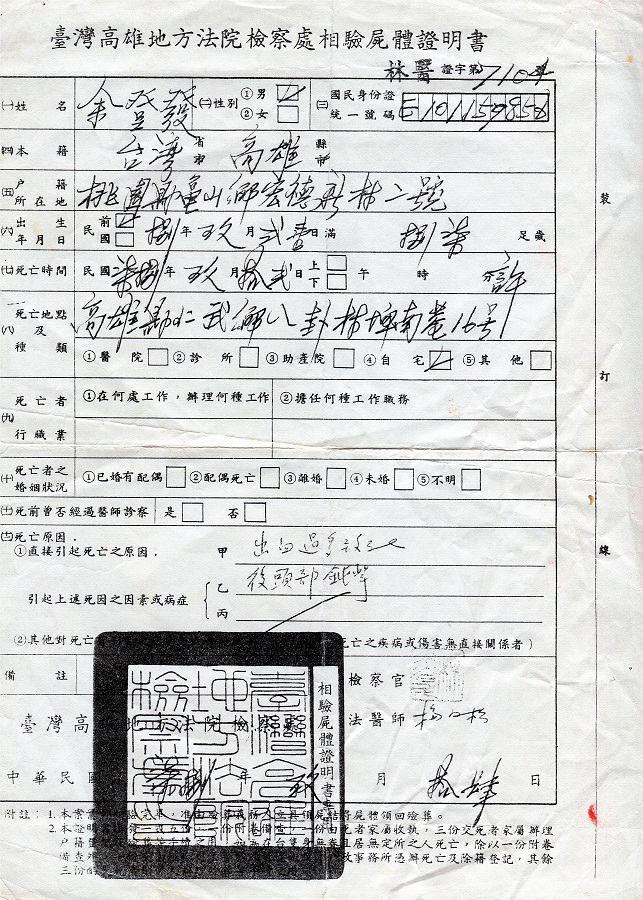 臺灣高雄地方法院檢察處相驗屍體證明書
林醫 證字第7104號
㈠姓名 余登發 ㈡性別 ①男 ②女 ㈢國民身份證統一號碼 E101159858
㈣本籍 台灣 省市 高雄 縣市
㈤戶籍所在地 桃園縣龜山鄉宏德新村二號
㈥出生年月日 民前 國 捌年 玖月 貳壹日 滿 捌柒 足歲
㈦死亡時間 民國柒捌年 玖月 拾貳日 上下午 時 許
㈧死亡地點及種類 高雄縣仁武鄉八卦村坤南巷16號
①醫院 ②診所 ③助產院 ④自宅 ⑤其他
㈨死亡者行職業 ①在何處工作，辦理何種工作 ②擔任何種工作職務
㈩死亡者之婚姻狀況 ①已婚有配偶 ②配偶死亡 ③離婚 ④未婚 ⑤不明
㈪死前曾否經過醫師診察 是 否
㈫死亡原因．
①直接引起死亡之原因． 甲 出血過多致死
引起上述死因之因素或病症 乙 後頭部鈍擊
丙
(2)其他對死亡 死亡之疾病或傷害無直接關係者）
備註 檢察官
臺灣高雄地方法院檢察處 法醫師
相驗屍體證明書
中華民國 柒捌年 玖月 拾肆日
附註：1.本案業
2.本證明書 份由死者家屬收執，三份交死者家屬辦理
戶籍 且居無定所之人死亡，除以一份附卷
備查 事務所憑辦死亡及除籍登記，其餘
三份
裝
訂
線